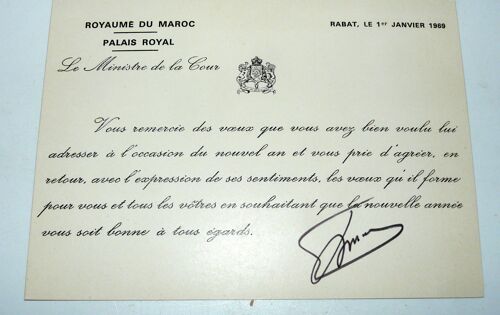 ROYAUME DU MAROC
RABAT, LE 1er JANVIER 1969
PALAIS ROYAL
Le Ministre de la Cour
Vous remercie des vœux que vous avez bien voulu lui
adresser à l'occasion du nouvel an et vous prie d'agréer, en
retour, avec l'expression de ses sentiments, les vœux qu'il forme
pour vous et tous les vôtres en souhaitant que la nouvelle année
vous soit bonne à tous égards.